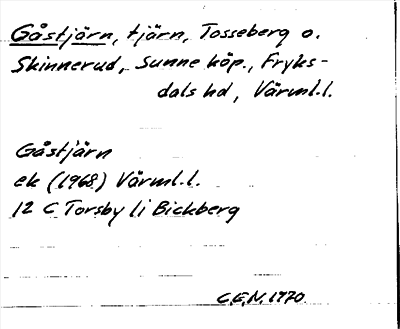 Gåstjärn, tjärn, Tosseberg o.
Skinnerud, Sunne köp., Fryks-
dals hd, Värml.l.
Gåstjärn
ek (1968) Värml.l.
12 C Torsby li Bickberg
C.E.N. 1970